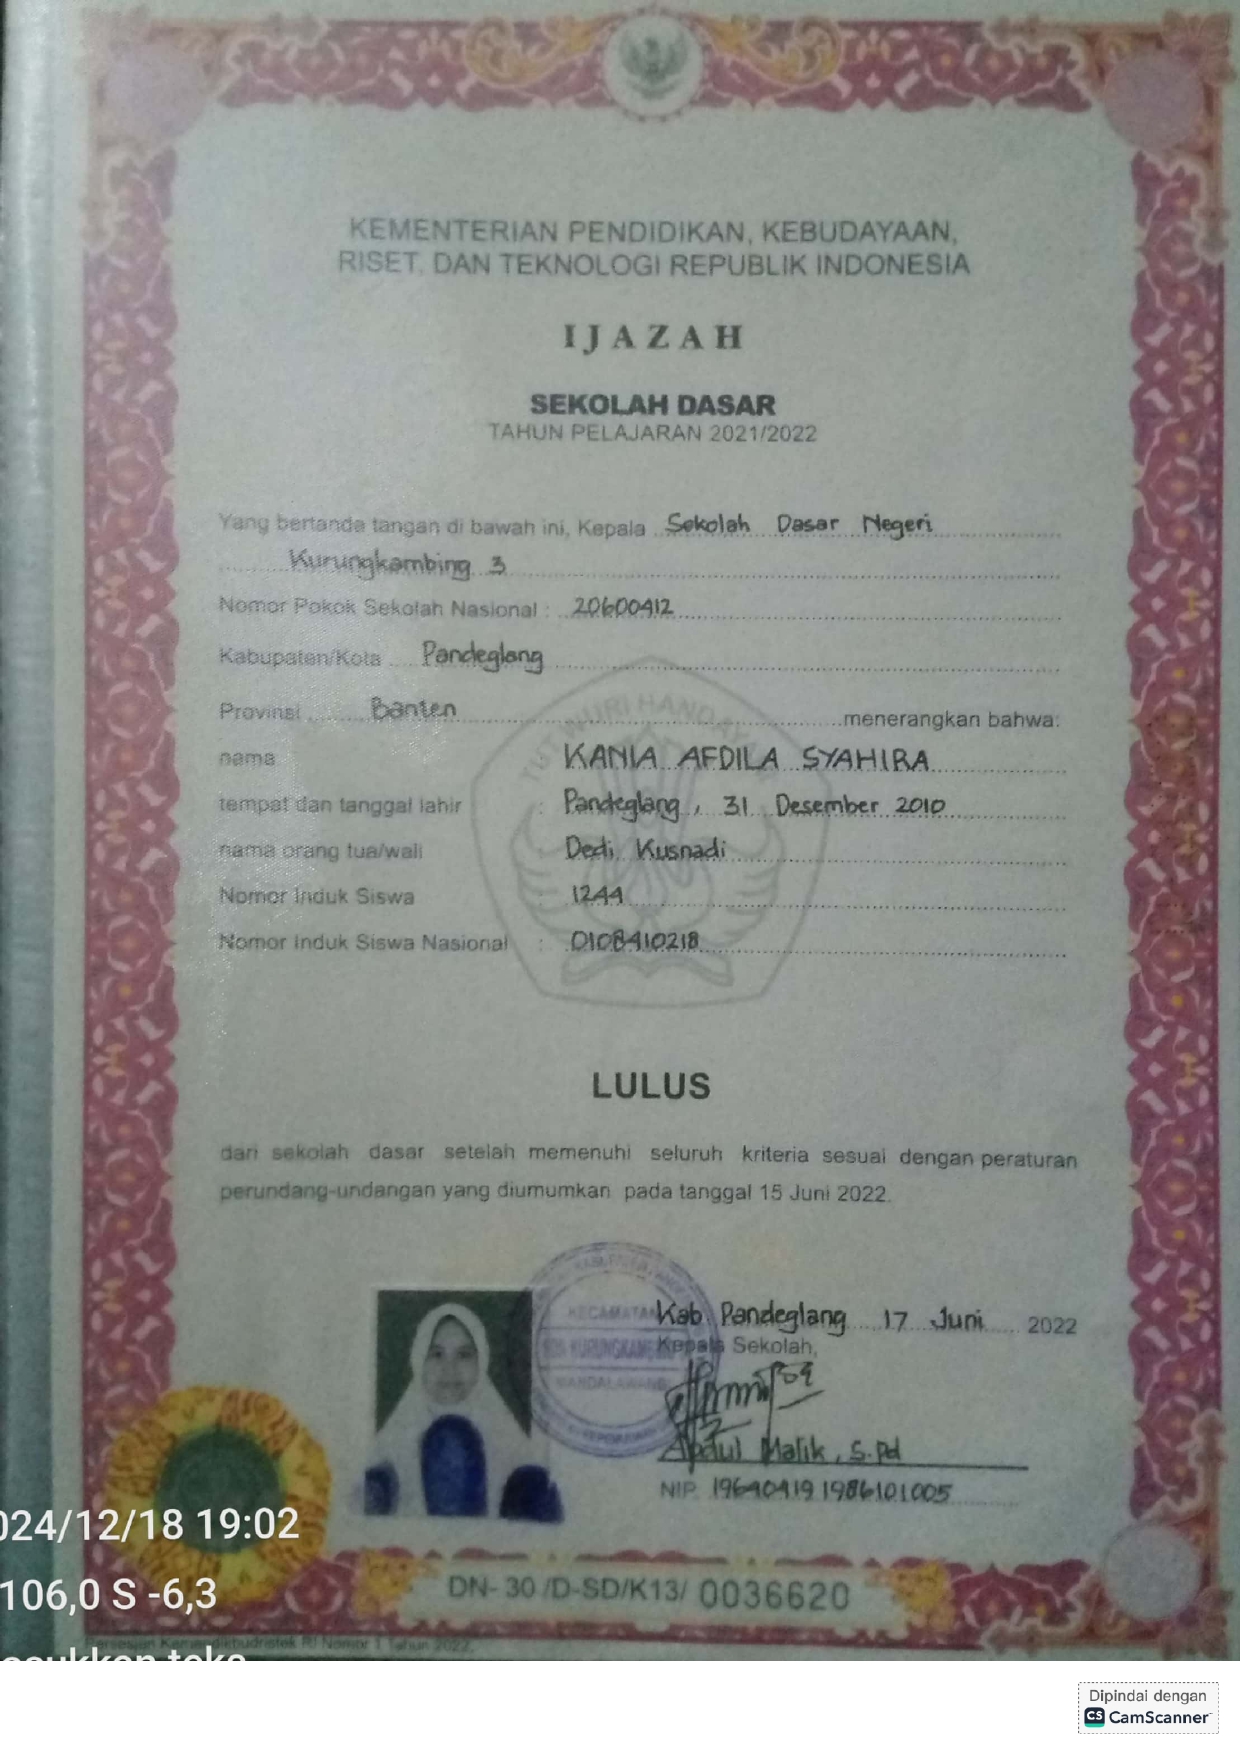 KEMENTERIAN PENDIDIKAN, KEBUDAYAAN,
RISET, DAN TEKNOLOGI REPUBLIK INDONESIA
IJAZAH
SEKOLAH DASAR
TAHUN PELAJARAN 2021/2022
Yang bertanda tangan di bawah ini, Kepala Sekolah Dasar Negeri
Kurungkambing 3
Nomor Pokok Sekolah Nasional : 20600412
Kabupaten/Kota Pandeglang
Provinsi Banten menerangkan bahwa:
TUT WURI HANDAY
nama KANIA AFDILA SYAHIRA
tempat dan tanggal lahir : Pandeglang, 31 Desember 2010
nama orang tua/wali Dedi Kusnadi
Nomor Induk Siswa : 1244
Nomor Induk Siswa Nasional : 0108410218
LULUS
dari sekolah dasar setelah memenuhi seluruh kriteria sesuai dengan peraturan
perundang-undangan yang diumumkan pada tanggal 15 Juni 2022.
KECAMATAN
MANDALAWANGI
Kab. Pandeglang 17 Juni 2022
Kepala Sekolah,
Abdul Malik, S.Pd
NIP. 196404191986101005
DN- 30 /D-SD/K13/ 0036620
024/12/18 19:02
106,0 S -6,3
Nomor 1 Tahun 2022
Dipindai dengan
CS CamScanner